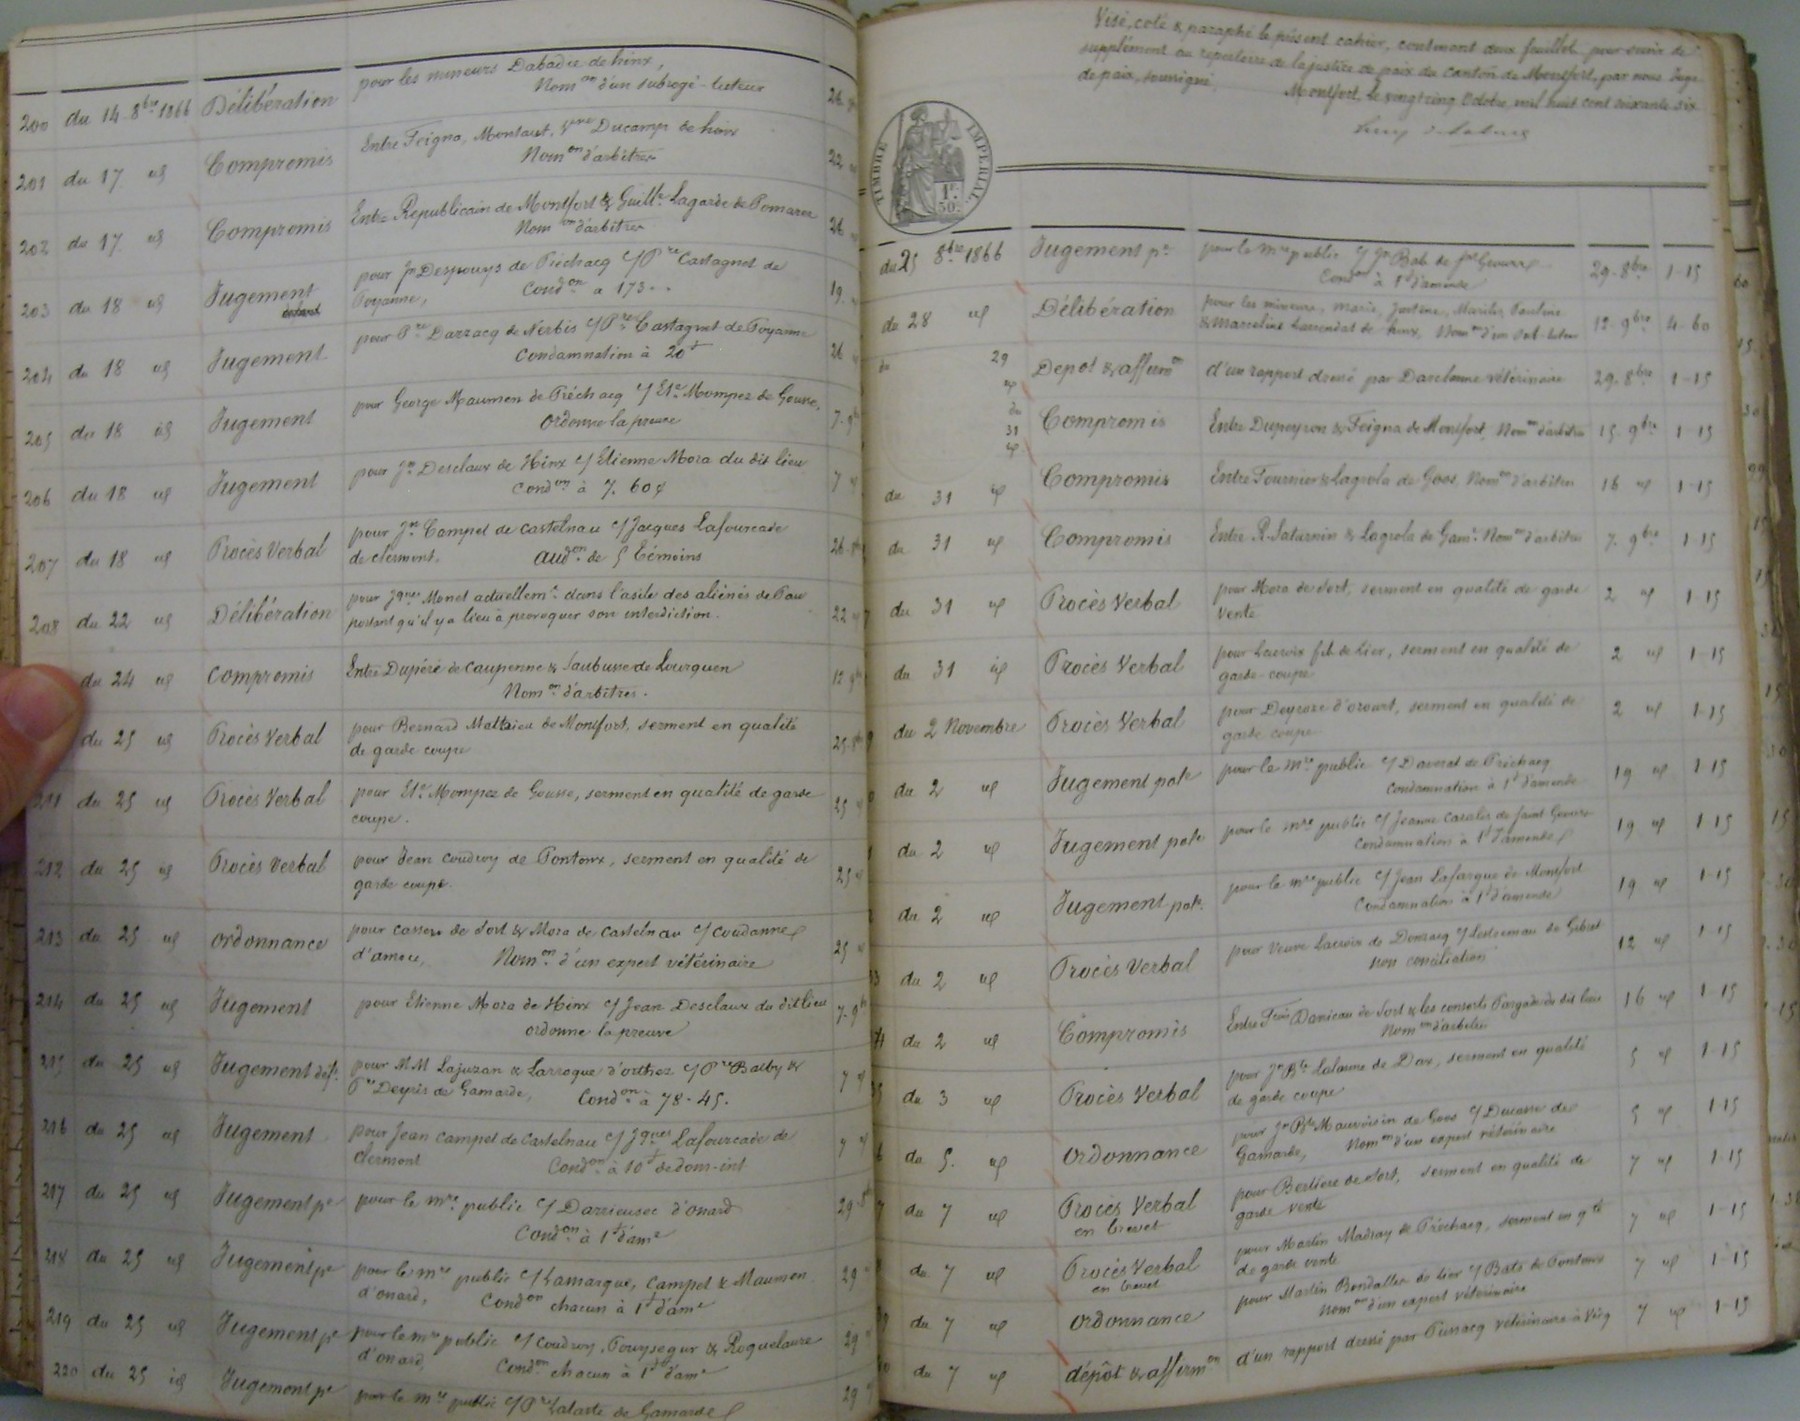 200 du 14 8bre 1866 Délibération pour les mineurs Dabadie de hinx,
Nom on d'un subrogé-tuteur 26
201 du 17 id Compromis Entre Feigna, Montaut, Vve Ducamp de hinx
Nom on d'arbitres 22
202 du 17 id Compromis Entre Republicain de Montfort & Guille Lagarde de Pomarez
Nom on d'arbitres 26
203 du 18 id Jugement pour Jn Despouys de Préchacq c/ Pre Castagnet de
Poyanne, Cond on a 173 19
204 du 18 id Jugement pour Pre Darzacq de Nerbis c/ Pre Castagnet de Poyanne
Condamnation à 20f 26
205 du 18 id Jugement pour George Maumen de Préchacq c/ Etne Mompez de Gousse,
Ordonne la preuve 7-9bre
206 du 18 id Jugement pour Jn Desclaux de Hinx c/ Etienne Mora du dit lieu
Cond on à 7. 60c 7 id
207 du 18 id Procès Verbal pour Jn Campet de Castelnau c/ Jacques Lafourcade
de clermont, aud on de 5 témoins 26 8bre
208 du 22 id Délibération pour Jques Monet actuellemt dans l'asile des aliénés de Pau
portant qu'il y a lieu à provoquer son interdiction. 22 id
du 24 id Compromis Entre Dupéré de Caupenne & Saubusse de Lourquen
Nom on d'arbitres. 12 9bre
du 25 id Procès Verbal pour Bernard Mathieu de Montfort, serment en qualité
de garde coupe 25 8bre
211 du 25 id Procès Verbal pour Etne Mompez de Gousse, serment en qualité de garde
coupe. 25 id
212 du 25 id Procès Verbal pour Jean Coudroy de Pontonx, serment en qualité de
garde coupe. 25 id
213 du 25 id Ordonnance pour Cassen de Sort & Mora de Castelnau c/ Coudanne
d'amou, Nom on d'un expert vétérinaire 25 id
214 du 25 id Jugement pour Etienne Mora de Hinx c/ Jean Desclaux du dit lieu
ordonne la preuve 7-9bre
215 du 25 id Jugement déft pour MM Lajuzan & Larroque d'orthez c/ Pre Balby &
Pre Deyris de Gamarde, Cond on à 78-45. 7 id
216 du 25 id Jugement pour Jean Campet de Castelnau c/ Jques Lafourcade de
clermont Cond on à 10f de dom-int 7 id
217 du 25 id Jugement pe pour le mre public c/ Darrieusec d'onard
Cond on à 1f d'ame 29 8bre
218 du 25 id Jugement pe pour le mre public c/ Lamarque, Campet & Maumen
d'onard, Cond on chacun à 1f d'ame 29
219 du 25 id Jugement pe pour le mre public c/ Coudroy, Pouysegur & Roquelaure
d'onard, Cond on chacun à 1f d'ame 29
220 du 25 id Jugement pe pour le mre public c/ Pre Lalaste de Gamarde 29
Visé, coté & paraphé le présent cahier, contenant deux feuillets pour servir de
supplément au repertoire de la justice de paix du Canton de Montfort, par nous Juge
de paix, soussigné, Montfort, le vingt cinq Octobre mil huit cent soixante six
TIMBRE IMPERIAL
1F.
50.c
du 25 8bre 1866 Jugement pe pour le mre public c/ Jn Bab de St Geours
Cond on à 1f d'amende 29-8bre 1-15
du 28 id Délibération pour les mineurs, Marie, Justine, Marilis, Pauline
& Marceline Lassendat de hinx, Nom on d'un Sub-tuteur 12-9bre 4-60
du 29 id Depot & affirm on d'un rapport dressé par Darclanne vétérinaire 29-8bre 1-15
du 31 id Compromis Entre Dupeyron & Feigna de Montfort, Nom on d'arbitres 15-9bre 1-15
du 31 id Compromis Entre Fournier & Lagrola de Goos, Nom on d'arbitres 16 id 1-15
du 31 id Compromis Entre R. Saturnin & Lagrola de Gam. Nom on d'arbitres 7-9bre 1-15
du 31 id Procès Verbal pour Mora de Sort, serment en qualité de garde
Vente 2 id 1-15
du 31 id Procès Verbal pour Lacrois fils de Lier, serment en qualité de
garde-coupe 2 id 1-15
du 2 Novembre Procès Verbal pour Deyroze d'ozourt, serment en qualité de
garde coupe 2 id 1-15
du 2 id Jugement pole pour le Mre public c/ Daverat de Préchacq
Condamnation à 1f d'amende 19 id 1-15
du 2 id Jugement pole pour le mre public c/ Jeanne Cazalis de Saint Geours
Condamnation à 1f d'amende 19 id 1-15
du 2 id Jugement pole pour le mre public c/ Jean Lafargue de Montfort
Condamnation à 1f d'amende 19 id 1-15
du 2 id Procès Verbal pour Veuve Lacroix de Donzacq c/ Lesterman de Gibret
non conciliation 12 id 1-15
du 2 id Compromis Entre Fcois Daricau de Sort & les consorts Pargade du dit lieu
Nom on d'arbitres 16 id 1-15
du 3 id Procès Verbal pour Jn Bte Lalanne de Dax, serment en qualité
de garde coupe 5 id 1-15
du 5. id Ordonnance pour Jn Bte Mauvoisin de Goos c/ Ducasse de
Gamarde, Nom on d'un expert vétérinaire 5 id 1-15
du 7 id Procès Verbal pour Berliere de Sort, serment en qualité de
en brevet garde vente 7 id 1-15
du 7 id Procès Verbal pour Martin Madray de Préchacq, serment en qté
en brevet de garde vente 7 id 1-15
du 7 id Ordonnance pour Martin Bondallez de Lier c/ Bats de Pontonx
Nom on d'un expert vétérinaire 7 id 1-15
du 7 id dépôt & affirm on d'un rapport dressé par Pussacq vétérinaire à Vicq 7 id 1-15